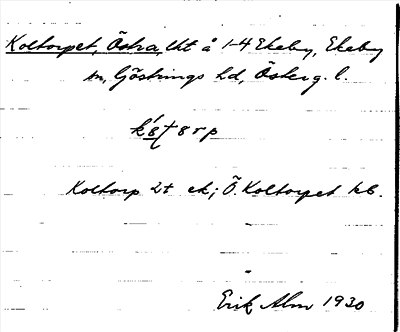 Koltorpet, Östra, lht å 1-4 Ekeby, Ekeby
sn, Göstrings hd, Österg. l.
Koltorp 2t ek; Ö. Koltorpet kb.
Erik Alm 1930